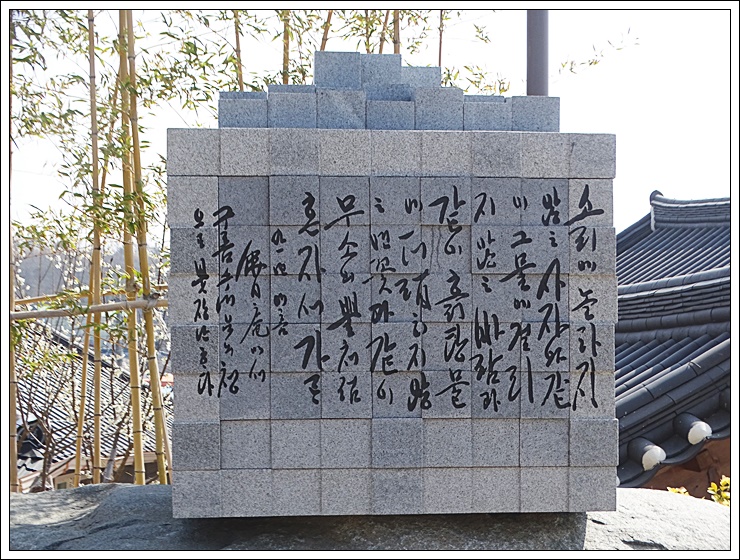 소리에 놀라지
않는 사자와 같
이 그물에 걸리
지 않는 바람과
같이 흙탕물
에 더럽히지 않
는 연꽃과 같이
무소의 뿔처럼
혼자서 가라
여름
에서